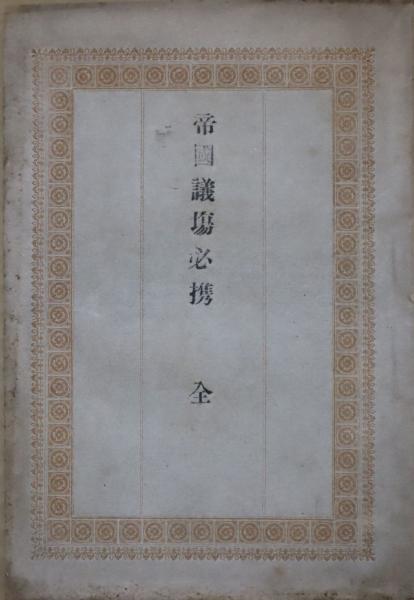 帝國議塲必携 全